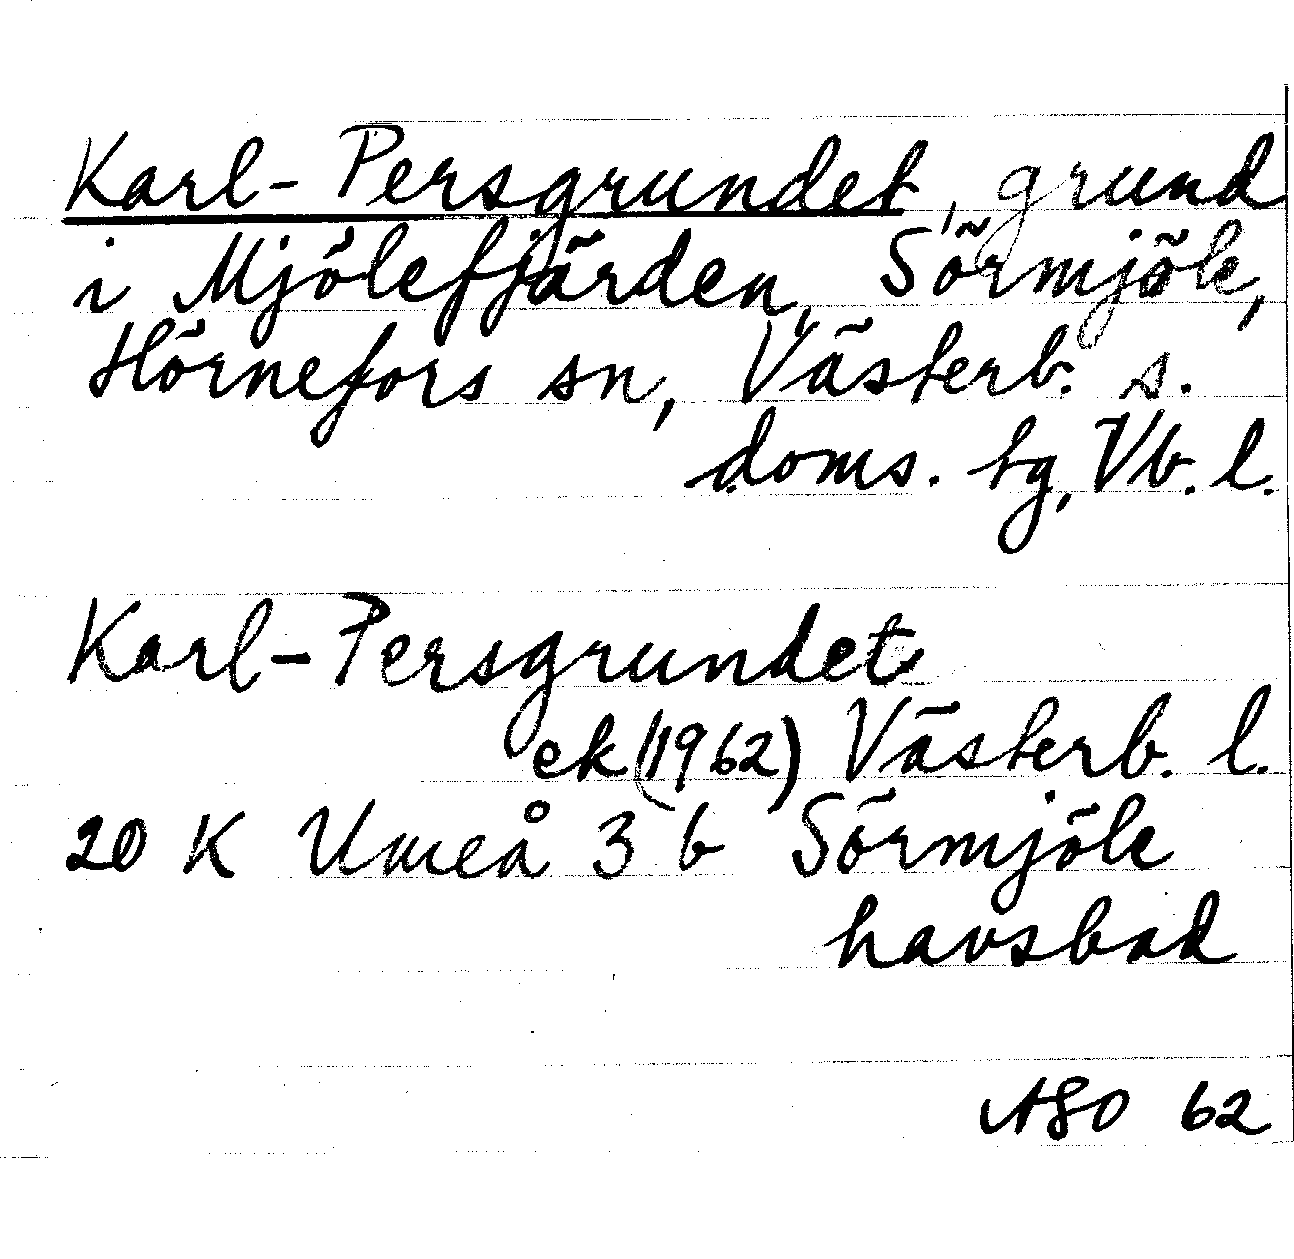 Karl-Persgrundet, grund
i Mjölefjärden, Sörmjöle,
Hörnefors sn, Västerb. s.
doms. tg, Vb. l.
Karl-Persgrundet
ek (1962) Västerb. l.
20 K Umeå 3 b Sörmjöle
havsbad
62